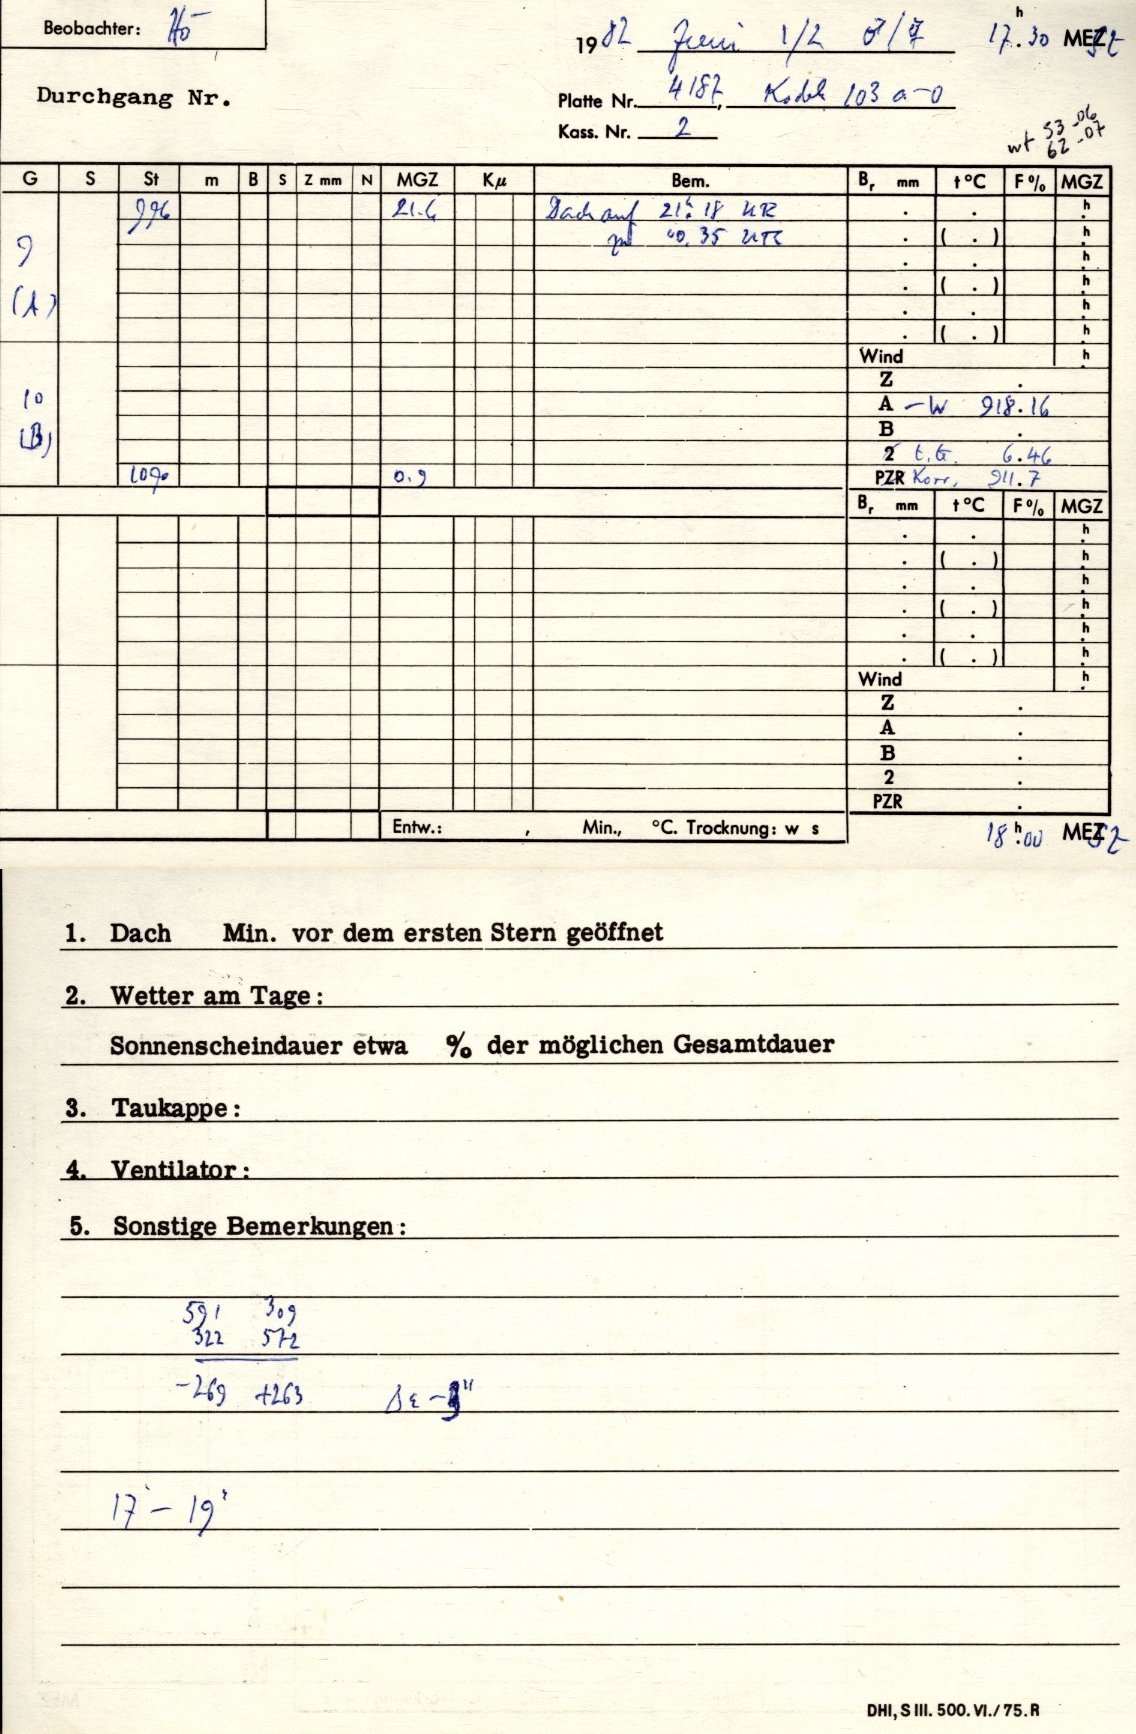 Beobachter: Hö
1982 Juni 1/2 ♂/☿ 17h.30 MESZ
Durchgang Nr.
Platte Nr. 4187, Kodak 103 a-0
Kass. Nr. 2
wt 53 -06
62 -07
G S St m B S Z mm N MGZ Kμ Bem. Br mm t°C F% MGZ
996 21.6 Dach auf 21h.18 UTC . . h
9 zu 0.35 UTC . ( . ) h
. . h
(A) . ( . ) h
. . h
. ( . ) h
Wind h
Z .
10 A -W 918.16
(B) B .
2 t.G. 6.46
1090 0.9 PZR Korr. 911.7
Br mm t°C F% MGZ
. . h
. ( . ) h
. . h
. ( . ) h
. . h
. ( . ) h
Wind h
Z .
A .
B .
2 .
PZR .
Entw.: , Min., °C. Trocknung: w s
18h.00 MESZ
1. Dach Min. vor dem ersten Stern geöffnet
2. Wetter am Tage:
Sonnenscheindauer etwa % der möglichen Gesamtdauer
3. Taukappe:
4. Ventilator:
5. Sonstige Bemerkungen:
591 309
322 572
-269 +263 Δε -
17' - 19'
DHI, S III. 500. VI./75. R